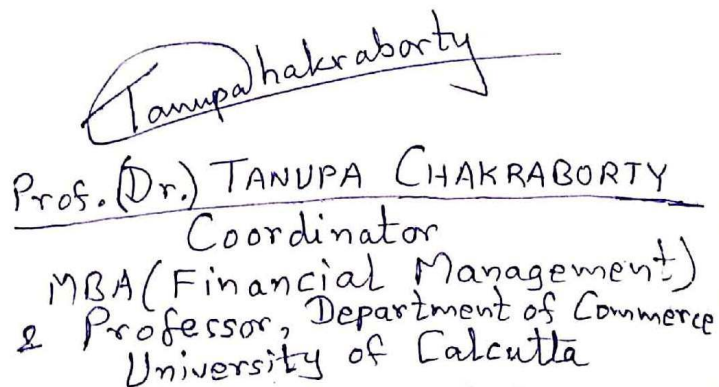 Tanupa Chakraborty
Prof. (Dr.) TANUPA CHAKRABORTY
Coordinator
MBA (Financial Management)
& Professor, Department of Commerce
University of Calcutta